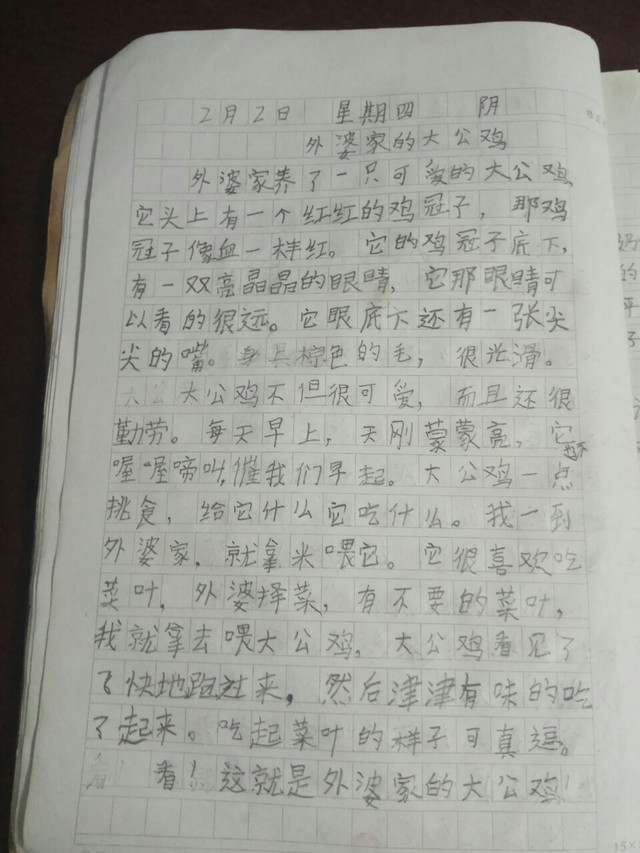 2月2日 星期四 阴
外婆家的大公鸡
外婆家养了一只可爱的大公鸡
它头上有一个红红的鸡冠子，那鸡
冠子像血一样红。它的鸡冠子底下，
有一双亮晶晶的眼睛，它那眼睛可
以看的很远。它眼底下还有一张尖
尖的嘴。身具棕色的毛，很光滑。
大公鸡不但很可爱，而且还很
勤劳。每天早上，天刚蒙蒙亮，它
喔喔啼叫，催我们早起。大公鸡一点也不
挑食，给它什么它吃什么。我一到
外婆家，就拿米喂它。它很喜欢吃
菜叶，外婆择菜，有不要的菜叶，
我就拿去喂大公鸡，大公鸡看见了
飞快地跑过来，然后津津有味的吃
了起来。吃起菜叶的样子可真逗。
看！这就是外婆家的大公鸡！